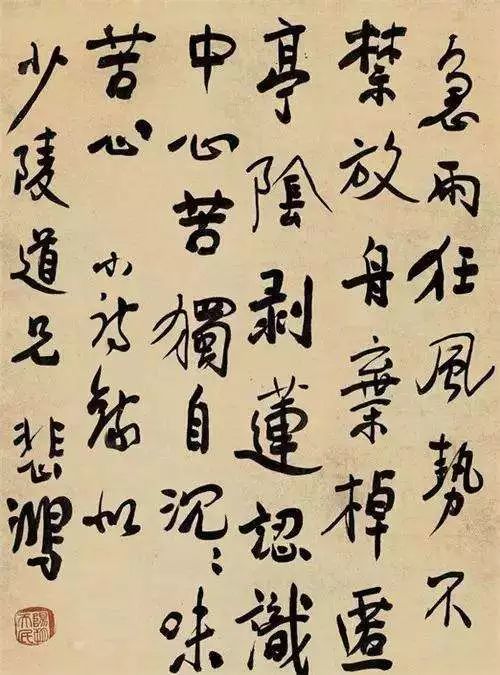 急雨狂風勢不
禁放舟棄棹匿
亭陰剥蓮認識
中心苦獨自沉〻味
苦心 小詩録似
少陵道兄 悲鴻